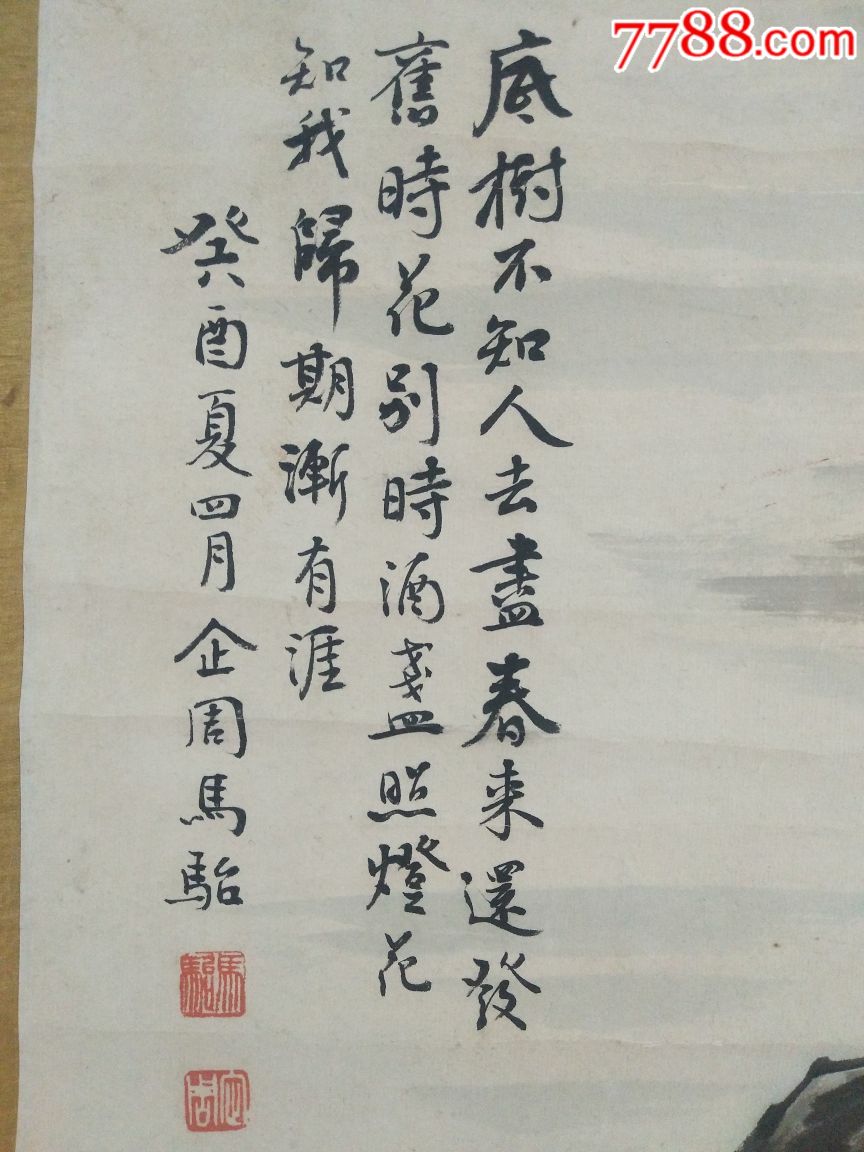 7788.com
底樹不知人去盡春来還發
舊時花别時酒盞照燈花
知我歸期漸有涯
癸酉夏四月企周馬駘
馬駘
企周